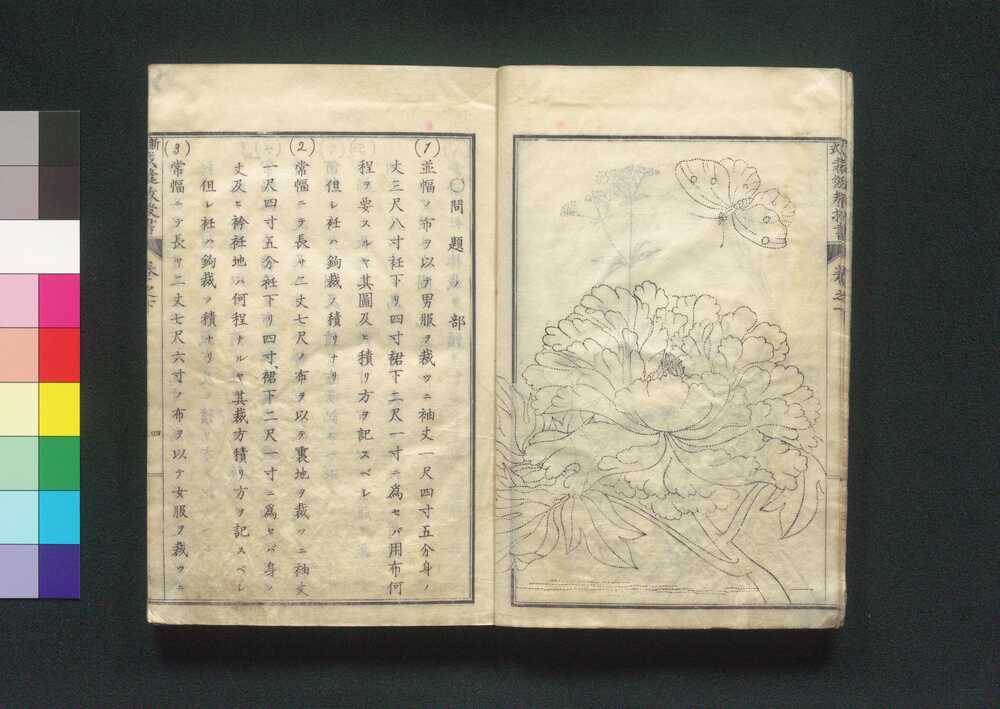 ○問題ノ部
(1) 並幅ノ布ヲ以テ男服ヲ裁ツニ袖丈一尺四寸五分身ノ
丈三尺八寸衽下リ四寸裾下二尺一寸ニ爲セバ用布何
程ヲ要スルヤ其圖及ヒ積リ方ヲ記スベレ
但レ衽ハ鉤裁ノ積リナリ
(2) 常幅ニテ長サ二丈七尺ノ布ヲ以テ裏地ヲ裁ツニ袖丈
一尺四寸五分衽下リ四寸、裾下二尺一寸ニ爲セバ身ノ
丈及ヒ衿衽地ハ何程ナルヤ其裁方積リ方ヲ記スベレ
但レ衽ハ鉤裁ノ積ナリ
(3) 常幅ニテ長サ二丈七尺六寸ノ布ヲ以テ女服ヲ裁ツニ
裁縫教授書
卷之下
四